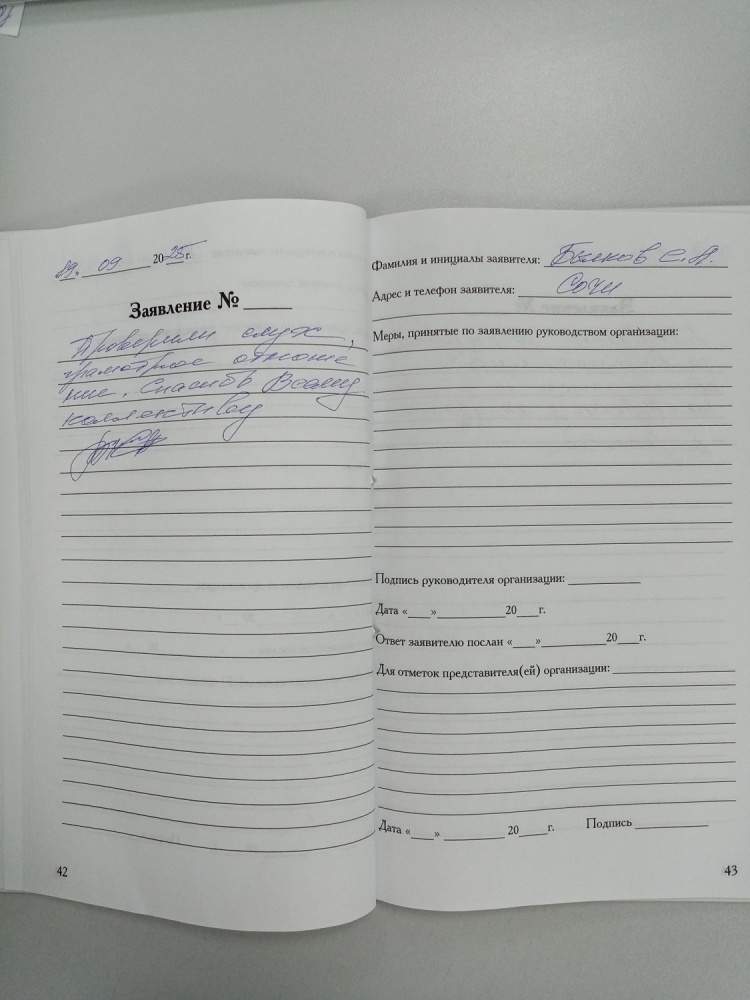 29. 09 2025г.
Заявление № ____
Проверили слух,
грамотное отноше
ние. Спасибо Всему
коллективу
42
Фамилия и инициалы заявителя: С.А.
Адрес и телефон заявителя: Сочи
Меры, принятые по заявлению руководством организации:
Подпись руководителя организации: ____
Дата «___»____ 20___г.
Ответ заявителю послан «___»____ 20___г.
Для отметок представителя(ей) организации: ____
Дата «___» ____ 20___г. Подпись ____
43